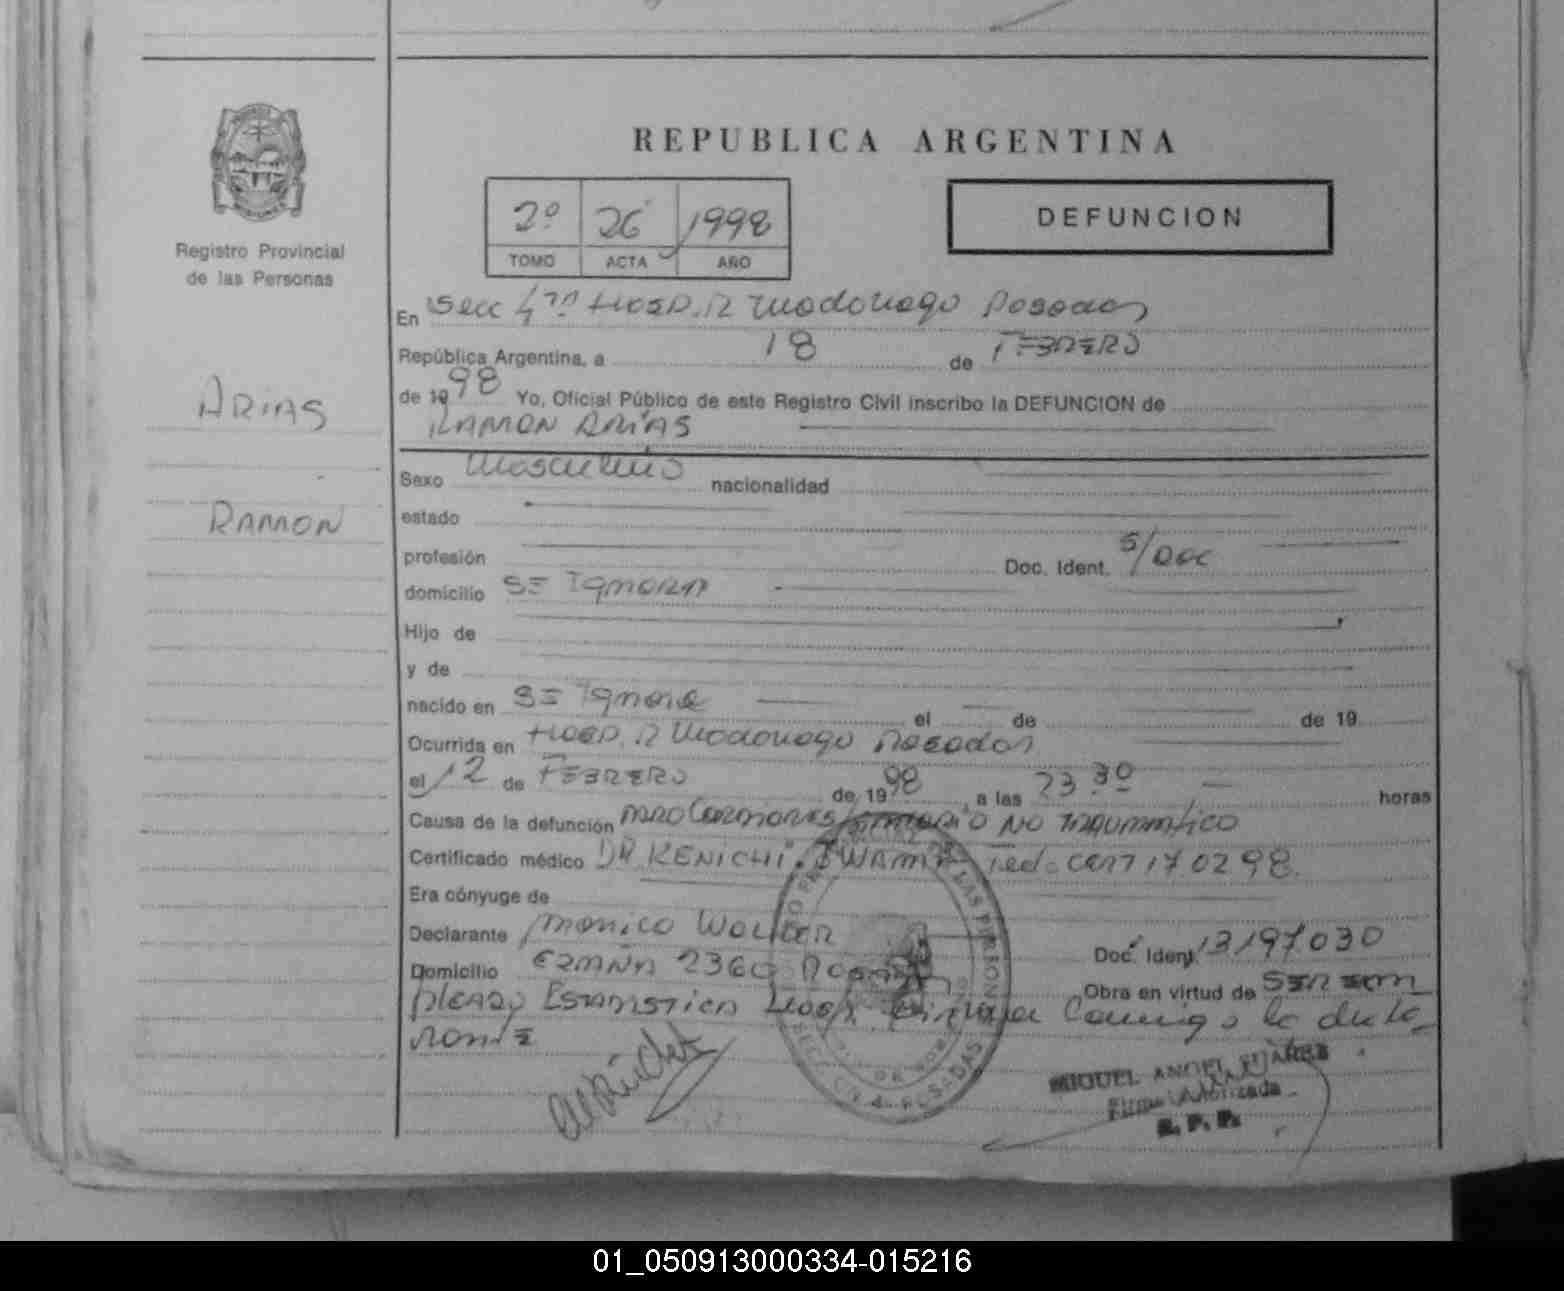 REPUBLICA ARGENTINA
2º 26 1998
TOMO ACTA AÑO
DEFUNCION
Registro Provincial
de las Personas
ARIAS
RAMON
En Secc 4ta Hosp. R Madariaga Posadas
República Argentina, a 18 de FEBRERO
de 1998 Yo, Oficial Público de este Registro Civil inscribo la DEFUNCION de
RAMON ARIAS
Sexo Masculino nacionalidad
estado
profesión Doc. Ident. S/Doc
domicilio SE Ignora
Hijo de
y de
nacido en SE Ignora el de de 19
Ocurrida en Hosp. R Madariaga Posadas
el 12 de FEBRERO de 1998, a las 23 30 horas
Causa de la defunción PARO CARDIORESPIRATORIO NO TRAUMATICO
Certificado médico DR KENICHI 170298.
Era cónyuge de
Declarante Walter Doc. Ident. 13197.030
Domicilio 2360 Obra en virtud de SER EM
PLEADO Estadistica Hosp. Firma Conmigo la decla
rante
SECC. 4 POSADAS
MIGUEL ANGEL SUAREZ
Firma Autorizada
R. P. P.
01_050913000334-015216